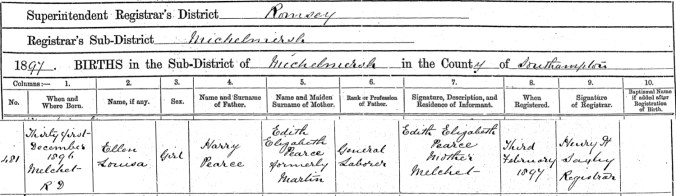 Superintendent Registrar's District Romsey
Registrar's Sub-District Michelmersh
1897. BIRTHS in the Sub-District of Michelmersh in the County of Southampton
Columns :— 1. 2. 3. 4. 5. 6. 7. 8. 9. 10.
No. When and Where Born. Name, if any. Sex. Name and Surname of Father. Name and Maiden Surname of Mother. Rank or Profession of Father. Signature, Description, and Residence of Informant. When Registered. Signature of Registrar. Baptismal Name if added after Registration of Birth.
481
Thirty first
December
1896
Melchet
R D
Ellen
Louisa
Girl
Harry
Pearce
Edith
Elizabeth
Pearce
formerly
Martin
General
Laborer
Edith Elizabeth
Pearce
Mother
Melchet
Third
February
1897
Henry
Registrar